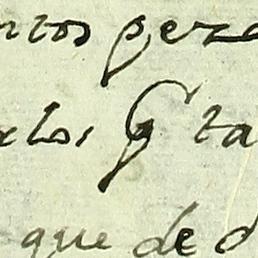 ntos peza
elos q ta
que de d